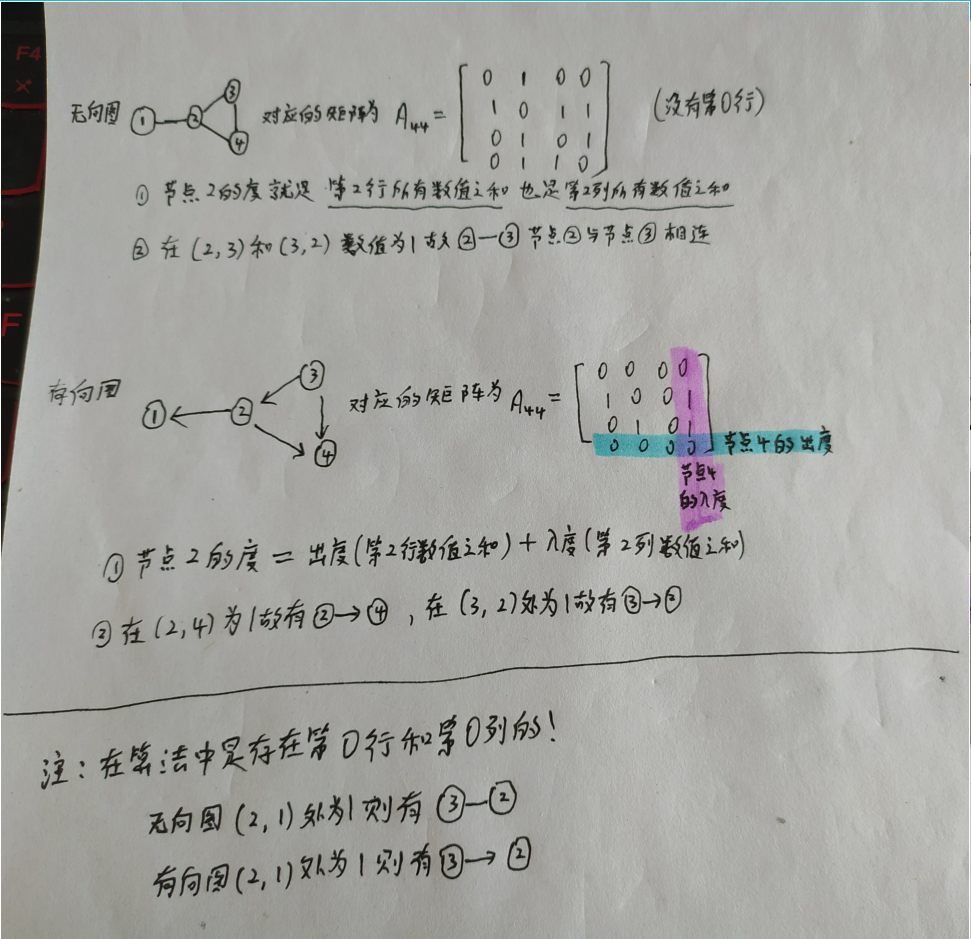 F4
无向图 ① ② ③ ④ 对应的矩阵为 A₄₄ = (没有第0行)
0 1 0 0
1 0 1 1
0 1 0 1
0 1 1 0
① 节点2的度就是 第2行所有数值之和 也是第2列所有数值之和
② 在(2,3)和(3,2)数值为1故②—③ 节点②与节点③相连
F
有向图 ① ② ③ ④ 对应的矩阵为 A₄₄ =
0 0 0 0
1 0 0 1
0 1 0 1
0 0 0 0 节点4的出度
节点4
的入度
① 节点2的度 = 出度(第2行数值之和) + 入度(第2列数值之和)
② 在(2,4)为1故有②→④, 在(3,2)处为1故有③→②
注: 在算法中是存在第0行和第0列的!
无向图(2,1)处为1则有 ③—②
有向图(2,1)处为1则有③→②